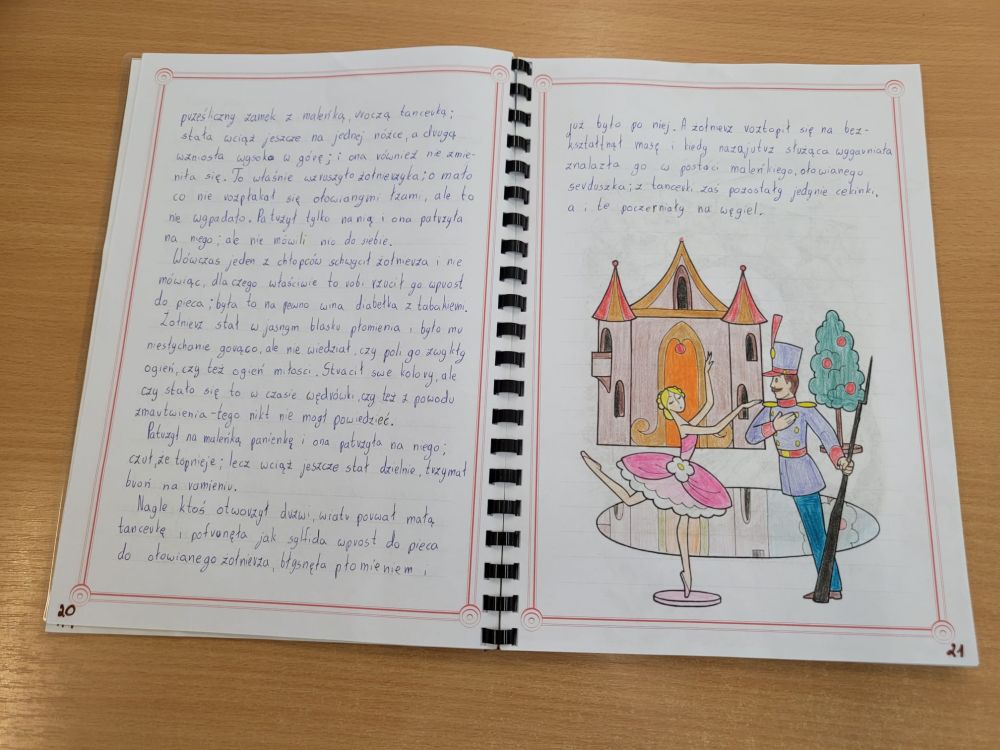 prześliczny zamek z maleńką, uroczą tancerką;
stała wciąż jeszcze na jednej nóżce, a drugą
wzniosła wysoko w górę; i ona również nie zmie-
niła się. To właśnie wzruszyło żołnierzyka; o mało
co nie rozpłakał się ołowianymi łzami, ale to
nie wypadało. Patrzył tylko na nią i ona patrzyła
na niego; ale nie mówili nic do siebie.
Wówczas jeden z chłopców schwycił żołnierza i nie
mówiąc, dlaczego właściwie to robi rzucił go wprost
do pieca; była to na pewno wina diabełka z tabakierki.
Żołnierz stał w jasnym blasku płomienia i było mu
niesłychanie gorąco, ale nie wiedział, czy pali go zwykły
ogień, czy też ogień miłości. Stracił swe kolory, ale
czy stało się to w czasie wędrówki, czy też z powodu
zmartwienia - tego nikt nie mógł powiedzieć.
Patrzył na maleńką panienkę i ona patrzyła na niego;
czuł, że topnieje; lecz wciąż jeszcze stał dzielnie, trzymał
broń na ramieniu.
Nagle ktoś otworzył drzwi, wiatr porwał małą
tancerkę i pofrunęła jak sylfida wprost do pieca
do ołowianego żołnierza, błysnęła płomieniem i
20
już było po niej. A żołnierz roztopił się na bez-
kształtną masę i kiedy nazajutrz służąca wygarniała
znalazła go w postaci maleńkiego, ołowianego
serduszka; z tancerki zaś pozostały jedynie cekinki,
a i te poczerniały na węgiel.
21